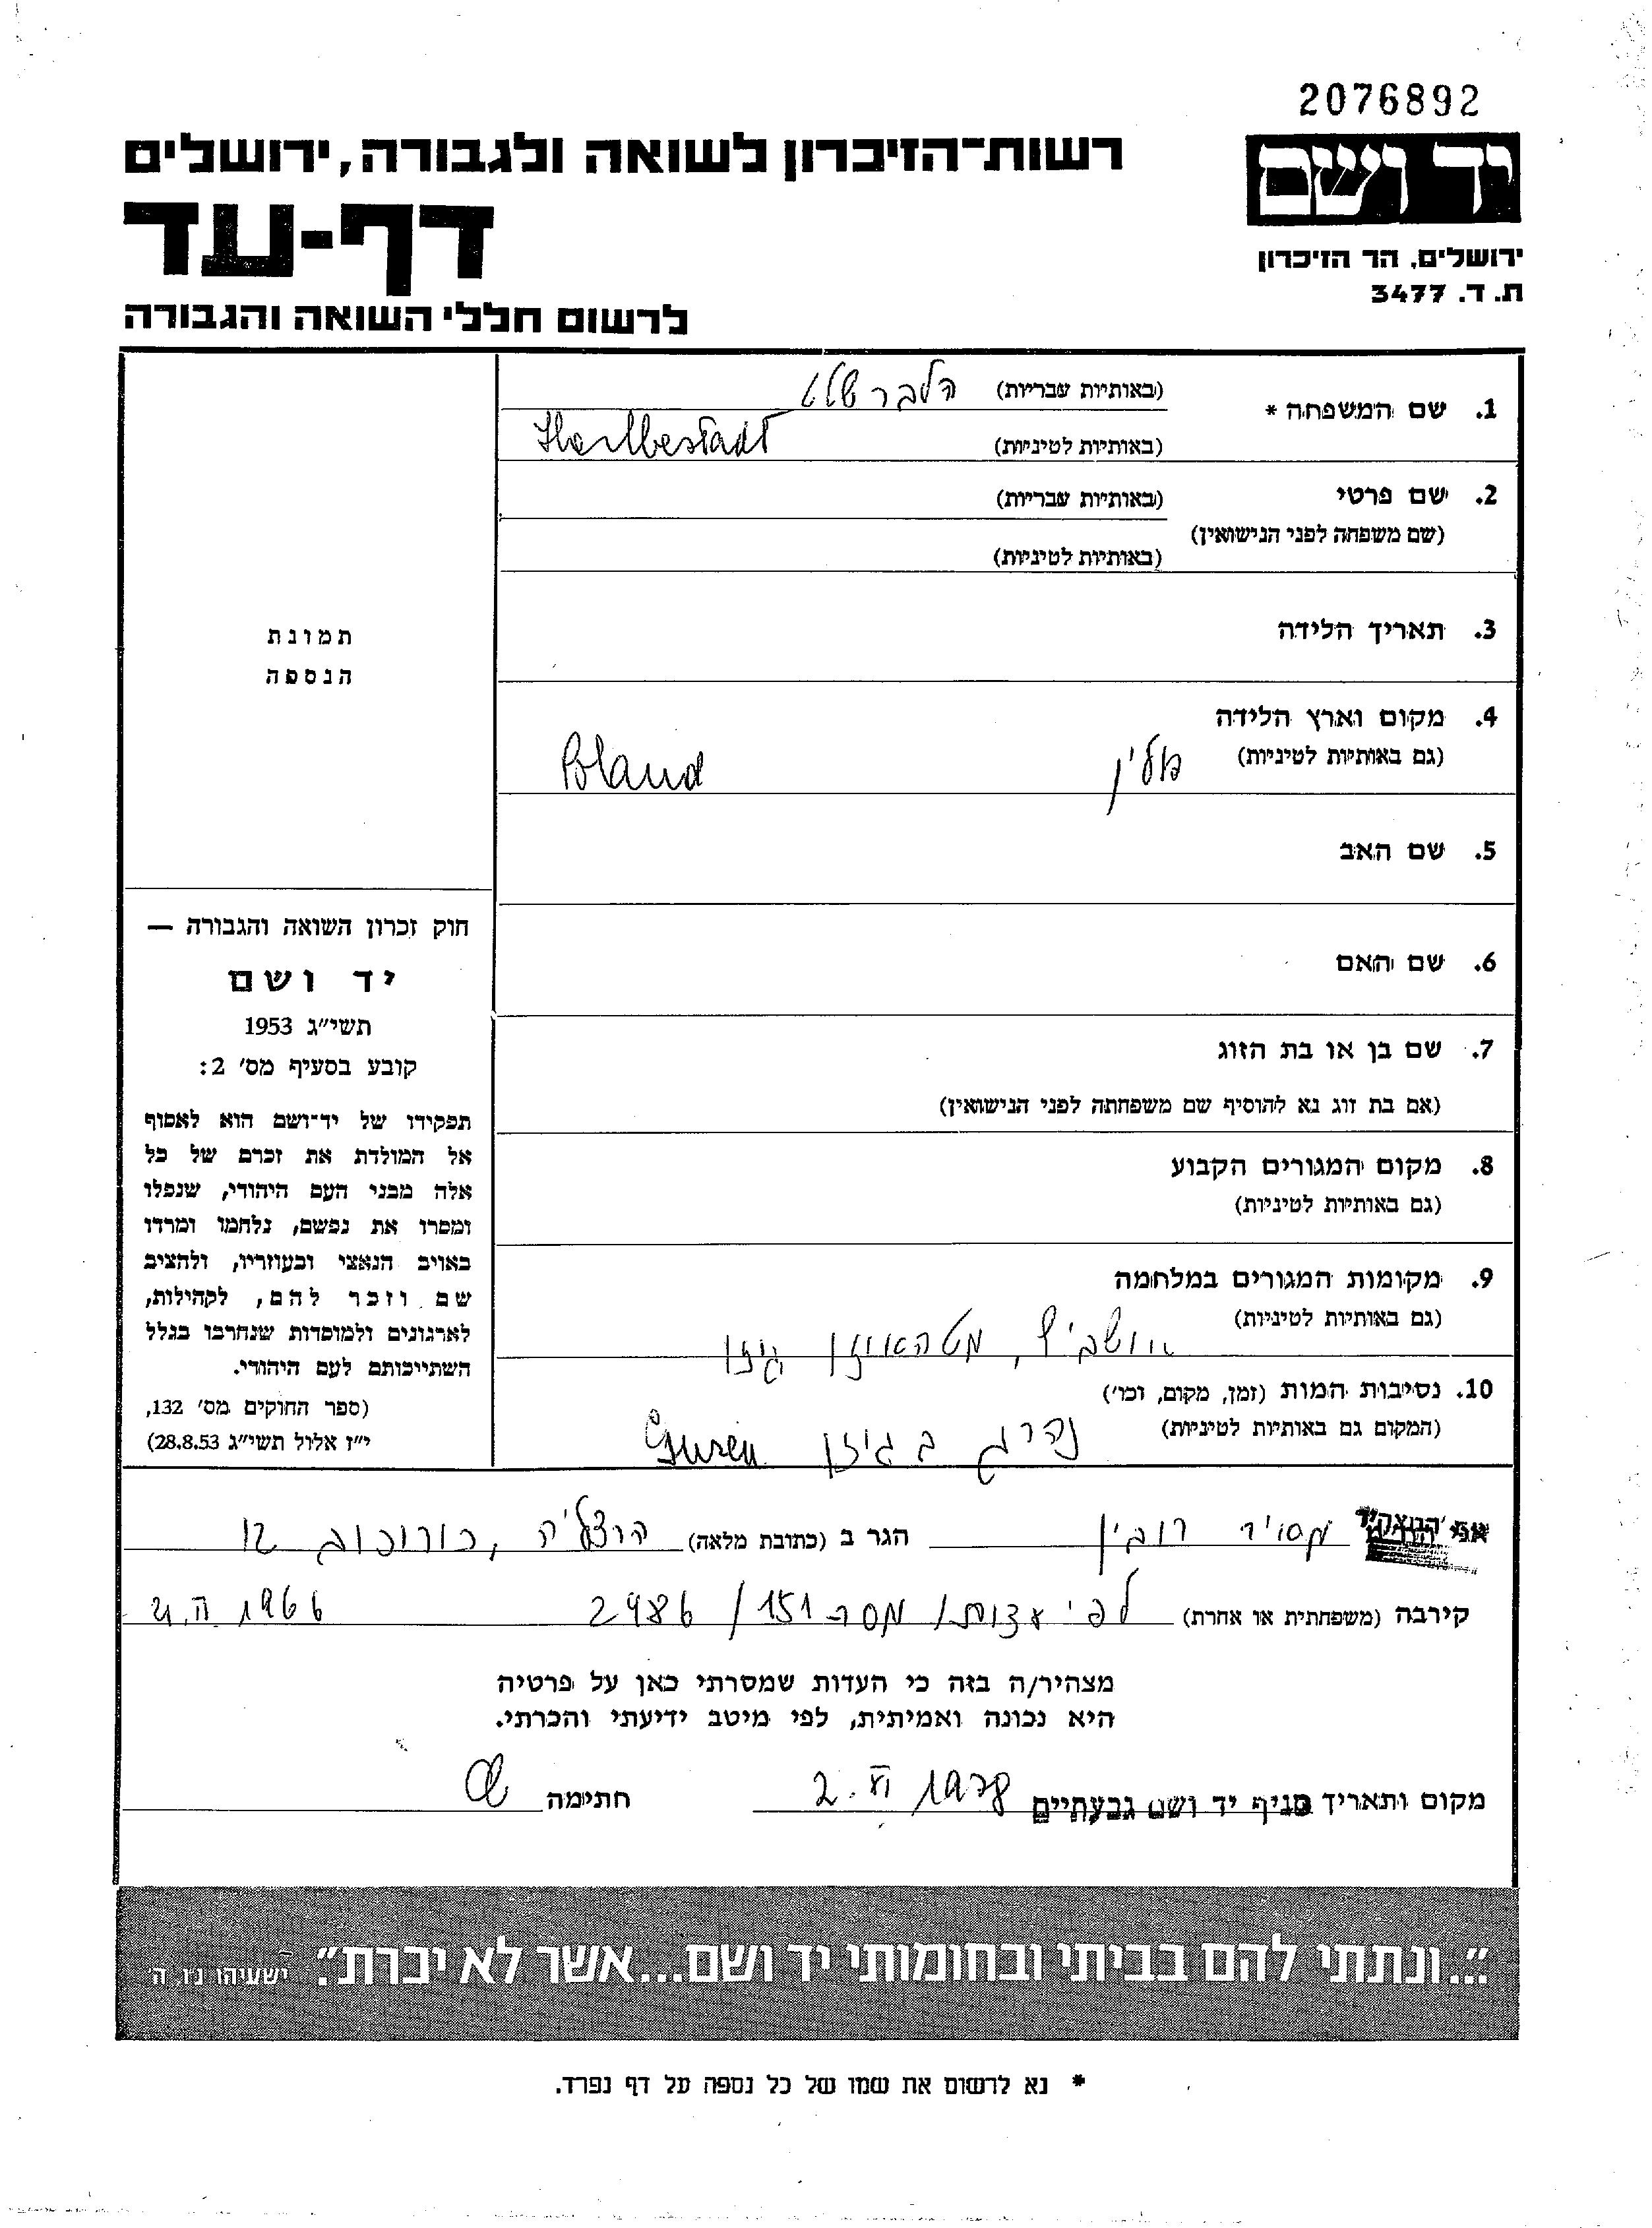 2076892
רשות־הזיכרון לשואה ולגבורה, ירושלים
יד ושם
דף-עד
ירושלים, הר הזיכרון
ת. ד. 3477
לרשום חללי השואה והגבורה
1. שם המשפחה *
(באותיות עבריות)
(באותיות לטיניות)
2. שם פרטי (באותיות עבריות)
(שם משפחה לפני הנישואין)
(באותיות לטיניות)
3. תאריך הלידה
תמונת
הנספה
4. מקום וארץ הלידה
(גם באותיות לטיניות) פולין Poland
5. שם האב
6. שם האם
7. שם בן או בת הזוג
(אם בת זוג נא להוסיף שם משפחתה לפני הנישואין)
8. מקום המגורים הקבוע
(גם באותיות לטיניות)
9. מקומות המגורים במלחמה
(גם באותיות לטיניות) אושביץ, מטהאוזן גוזן
10. נסיבות המות (זמן, מקום, וכו')
(המקום גם באותיות לטיניות) נהרג בגוזן Gusen
חוק זכרון השואה והגבורה —
יד ושם
תשי"ג 1953
קובע בסעיף מס' 2:
תפקידו של יד־ושם הוא לאסוף
אל המולדת את זכרם של כל
אלה מבני העם היהודי, שנפלו
ומסרו את נפשם, נלחמו ומרדו
באויב הנאצי ובעוזריו, ולהציב
שם וזכר להם, לקהילות,
לארגונים ולמוסדות שנחרבו בגלל
השתייכותם לעם היהודי.
(ספר החוקים מס' 132,
י"ז אלול תשי"ג 28.8.53)
אני רובין הגר ב (כתובת מלאה) הרצליה, 12
קירבה (משפחתית או אחרת) לפי עדות מסר 151 / 2486 1966
מצהיר/ה בזה כי העדות שמסרתי כאן על פרטיה
היא נכונה ואמיתית, לפי מיטב ידיעתי והכרתי.
מקום ותאריך סניף יד ושם גבעתיים 2. VI 1978 חתימה
"...ונתתי להם בביתי ובחומותי יד ושם...אשר לא יכרת". ישעיהו נ״ו, ה׳
* נא לרשום את שמו של כל נספה על דף נפרד.